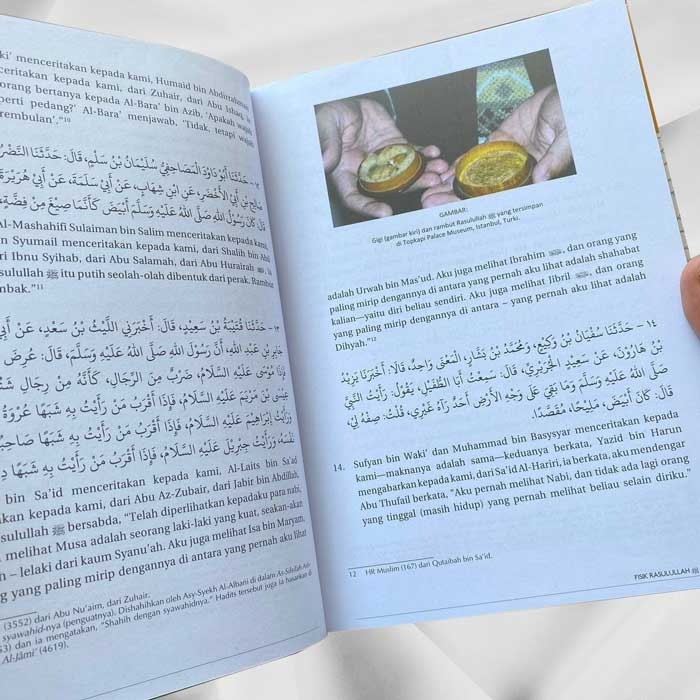 ki' menceritakan kepada kami, Humaid bin Abdirrahman
ceritakan kepada kami, dari Zuhair, dari Abu Ishaq, ia
orang bertanya kepada Al-Bara' bin Azib, 'Apakah wajah
perti pedang?' Al-Bara' menjawab, 'Tidak, tetapi wajah
rembulan'."10
١٢- حَدَّثَنَا أَبُو دَاوُدَ الْمَصَاحِفِيُّ سُلَيْمَانُ بْنُ سَلْمٍ، قَالَ: حَدَّثَنَا النَّضْرُ
صَالِحِ بْنِ أَبِي الْأَخْضَرِ، عَنِ ابْنِ شِهَابٍ، عَنْ أَبِي سَلَمَةَ، عَنْ أَبِي هُرَيْرَةَ
قَالَ: كَانَ رَسُولُ اللهِ صَلَّى اللهُ عَلَيْهِ وَسَلَّمَ أَبْيَضَ كَأَنَّمَا صِيغَ مِنْ فِضَّةٍ،
Al-Mashahifi Sulaiman bin Salim menceritakan kepada kami,
n Syumail menceritakan kepada kami, dari Shalih bin Abil
ri Ibnu Syihab, dari Abu Salamah, dari Abu Hurairah, ia
sulullah ﷺ itu putih seolah-olah dibentuk dari perak, Rambut
mbak."11
١٣- حَدَّثَنَا قُتَيْبَةُ بْنُ سَعِيدٍ، قَالَ: أَخْبَرَنِي اللَّيْثُ بْنُ سَعْدٍ، عَنْ أَبِي
جَابِرِ بْنِ عَبْدِ اللهِ، أَنَّ رَسُولَ اللهِ صَلَّى اللهُ عَلَيْهِ وَسَلَّمَ، قَالَ: عُرِضَ
فَإِذَا مُوسَى عَلَيْهِ السَّلَامُ، ضَرْبٌ مِنَ الرِّجَالِ، كَأَنَّهُ مِنْ رِجَالِ
عِيسَى بْنَ مَرْيَمَ عَلَيْهِ السَّلَامُ، فَإِذَا أَقْرَبُ مَنْ رَأَيْتُ بِهِ شَبَهًا عُرْوَةُ
وَرَأَيْتُ إِبْرَاهِيمَ عَلَيْهِ السَّلَامُ، فَإِذَا أَقْرَبُ مَنْ رَأَيْتُ بِهِ شَبَهًا
نَفْسَهُ، وَرَأَيْتُ جِبْرِيلَ عَلَيْهِ السَّلَامُ، فَإِذَا أَقْرَبُ مَنْ رَأَيْتُ بِهِ شَبَهًا
bin Sa'id menceritakan kepada kami, Al-Laits bin Sa'ad
akan kepada kami, dari Abu Az-Zubair, dari Jabir bin Abdillah,
sulullah ﷺ bersabda, "Telah diperlihatkan kepadaku para nabi,
melihat Musa adalah seorang laki-laki yang kuat, seakan-akan
h – lelaki dari kaum Syanu'ah. Aku juga melihat Isa bin Maryam,
g yang paling mirip dengannya di antara yang pernah aku lihat
(3552) dari Abu Nu'aim, dari Zuhair.
syawahid-nya (penguatnya). Dishahihkan oleh Asy-Syekh Al-Albani di dalam As-Silsilah Ash-
53) dan ia mengatakan, "Shahih dengan syawahidnya." Hadits tersebut juga ia hasankan di
Al-Jâmi' (4619).
GAMBAR:
Gigi (gambar kiri) dan rambut Rasulullah ﷺ yang tersimpan
di Topkapi Palace Museum, Istanbul, Turki.
adalah Urwah bin Mas'ud. Aku juga melihat Ibrahim, dan orang yang
paling mirip dengannya di antara yang pernah aku lihat adalah shahabat
kalian—yaitu diri beliau sendiri. Aku juga melihat Jibril, dan orang
yang paling mirip dengannya di antara – yang pernah aku lihat adalah
Dihyah."12
١٤ - حَدَّثَنَا سُفْيَانُ بْنُ وَكِيعٍ، وَمُحَمَّدُ بْنُ بَشَّارٍ، الْمَعْنَى وَاحِدٌ، قَالَا: أَخْبَرَنَا يَزِيدُ
بْنُ هَارُونَ، عَنْ سَعِيدٍ الْجُرَيْرِيِّ، قَالَ: سَمِعْتُ أَبَا الطُّفَيْلِ، يَقُولُ: رَأَيْتُ النَّبِيَّ
صَلَّى اللهُ عَلَيْهِ وَسَلَّمَ وَمَا بَقِيَ عَلَى وَجْهِ الْأَرْضِ أَحَدٌ رَآهُ غَيْرِي، قُلْتُ: صِفْهُ لِي،
قَالَ: كَانَ أَبْيَضَ، مَلِيحًا، مُقَصَّدًا.
14. Sufyan bin Waki' dan Muhammad bin Basysyar menceritakan kepada
kami—maknanya adalah sama—keduanya berkata, Yazid bin Harun
mengabarkan kepada kami, dari Sa'id Al-Hariri, ia berkata, aku mendengar
Abu Thufail berkata, "Aku pernah melihat Nabi, dan tidak ada lagi orang
yang tinggal (masih hidup) yang pernah melihat beliau selain diriku."
12 HR Muslim (167) dari Qutaibah bin Sa'id.
FISIK RASULULLAH ﷺ